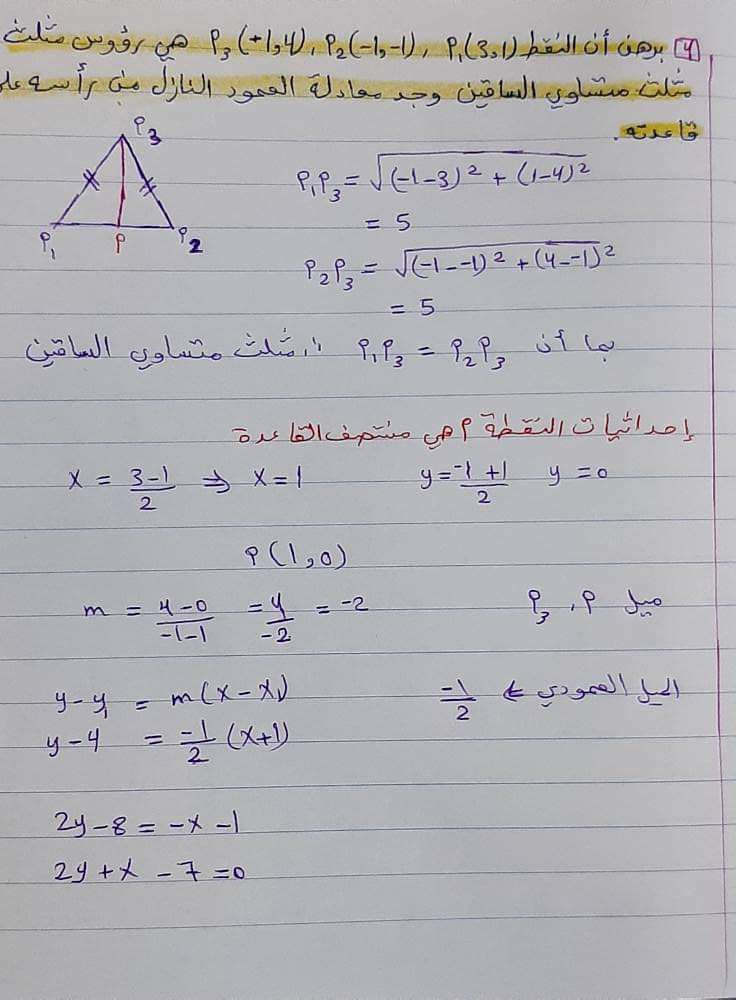 4 برهن أن النقط P₁(3,1) , P₂(-1,-1) , P₃(+1,4) هي رؤوس مثلث
مثلث متساوي الساقين وجد معادلة العمود النازل من رأسه على
قاعدته.
P₃
P₁ P P₂
P₁P₃ = √(-1-3)² + (1-4)²
= 5
P₂P₃ = √(-1--1)² + (4--1)²
= 5
بما أن P₁P₃ = P₂P₃ ∴ مثلث متساوي الساقين
إحداثيات النقطة P هي منتصف القاعدة
x = (3-1)/2 ⇒ x = 1 y = (-1+1)/2 y = 0
P(1,0)
ميل P, P₃ m = (4-0)/(-1-1) = 4/-2 = -2
الميل العمودي ⇐ -1/2
y - y₁ = m(x - x₁)
y - 4 = -1/2 (x+1)
2y - 8 = -x - 1
2y + x - 7 = 0